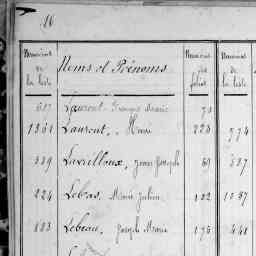 16
Numéros de la liste Noms et Prénoms Numéros des folios Numéros de la liste
Laurent, François Marie 73
1361 Laurent, Henri 223 974
539 Lavailloux, Jean Joseph 69 537
224 Lebras, Marie Julien 132 1037
803 Lebeau, Joseph Marie 175 441